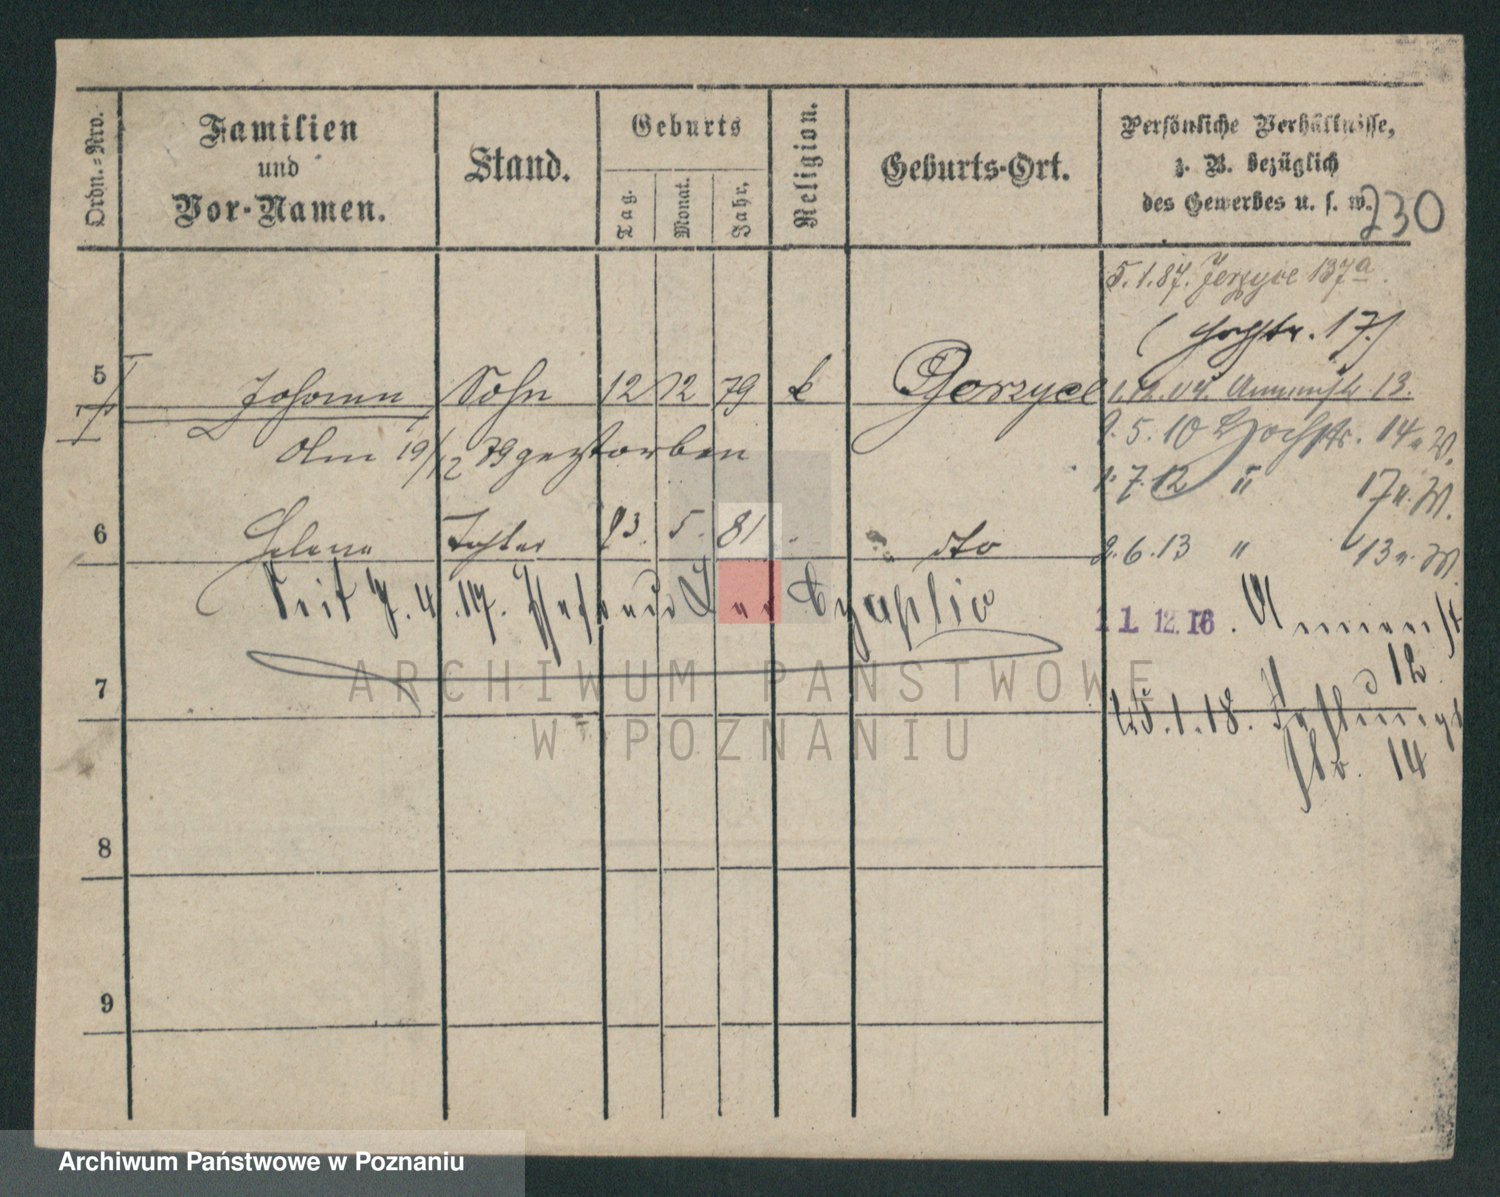 Ordn.=Nro.
Familien
und
Vor-Namen.
Stand.
Geburts
Tag.
Monat.
Jahr.
Religion.
Geburts-Ort.
Persönliche Verhältnisse,
z. B. bezüglich
des Gewerbes u. s. w.
230
5.1.87. Jerzyce 137a
(Hochstr. 17.)
5 Johann Sohn 12 12 79 k Gorzyce
1.12.04. 13.
Am 19/12 79 gestorben
9.5.10 Hochstr. 14 u. W.
1.7.12 " 17 u. W.
6 Helene Tochter 23. 5. 81 dto
2.6.13 " 13 u. W.
Seit 7.4.17.
11. 12. 16. Annenstr
12
7
25.1.18. Festungs
str. 14
8
9
ARCHIWUM PAŃSTWOWE
W POZNANIU
Archiwum Państwowe w Poznaniu